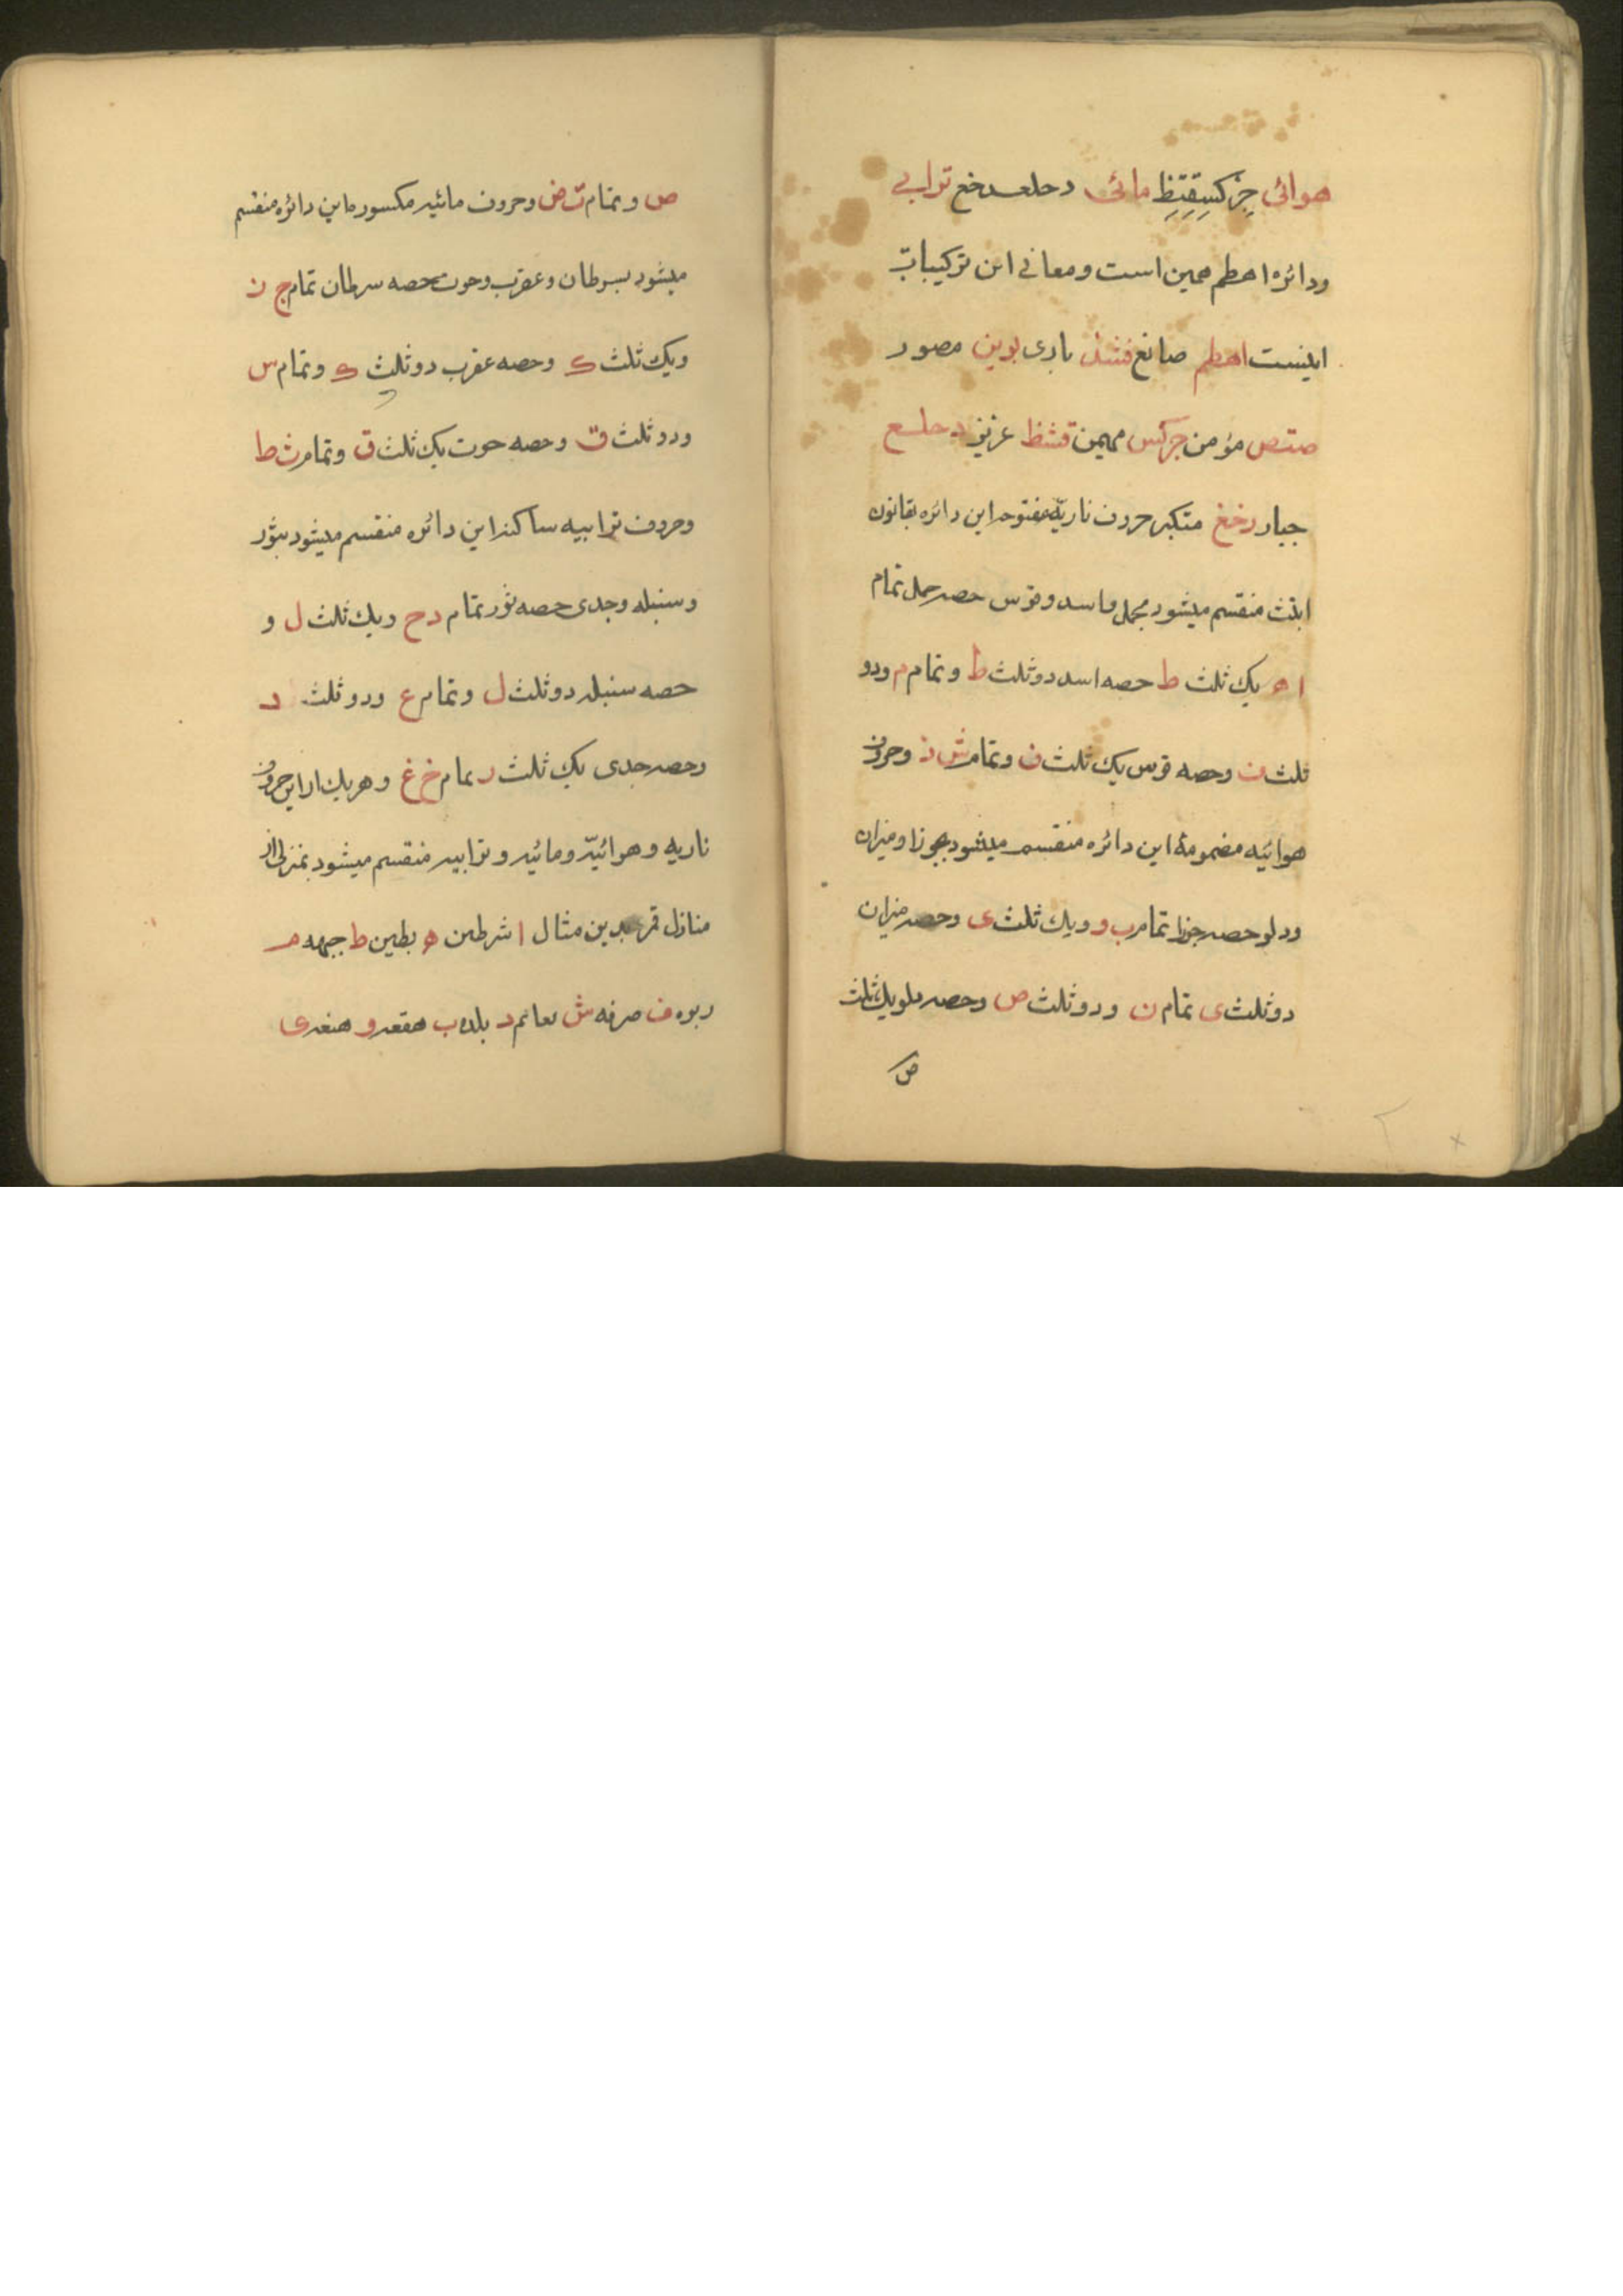 هوائی جزکسقثظ مائی دحلعرخغ ترابی
ودائره اهطم همین است ومعانی این ترکیبات
اینست اهطم صانع فشذ باری بوین مصور
صتض مؤمن جزکس مهیمن قثظ عزیز دحلع
جبار رخغ متکبر حروف ناریه مفتوحه این دائره بقانون
ابتث منقسم میشود بحمل واسد وقوس حصه حمل تمام
ا ه یک ثلث ط حصه اسد دو ثلث ط وتمام م ودو
ثلث ف وحصه قوس یک ثلث ف وتمام ش ذ وحروف
هوائیه مضمومهٔ این دائره منقسم میشود بجوزا ومیزان
ودلو حصه جوزا تمام ب و ویک ثلث ی وحصه میزان
دو ثلث ی تمام ن ودو ثلث ص وحصه دلو یک ثلث
ص
ص وتمام ت ض وحروف مائیه مکسوره این دائره منقسم
میشود بسرطان وعقرب وحوت حصه سرطان تمام ج ز
ویک ثلث ک وحصه عقرب دو ثلث ک وتمام س
ودو ثلث ق وحصه حوت یک ثلث ق وتمام ث ظ
وحروف ترابیه ساکنه این دائره منقسم میشود بثور
وسنبله وجدی حصه ثور تمام د ح ویک ثلث ل و
حصه سنبله دو ثلث ل وتمام ع ودو ثلث ر
وحصه جدی یک ثلث ر تمام خ غ وهر یک از این حروف
ناریه وهوائیه ومائیه وترابیه منقسم میشود بمنزلی از
منازل قمر بدین مثال ا شرطین ه بطین ط جبهه م
زبره ف صرفه ش نعایم ذ بلده ب هقعه و هنعه ی